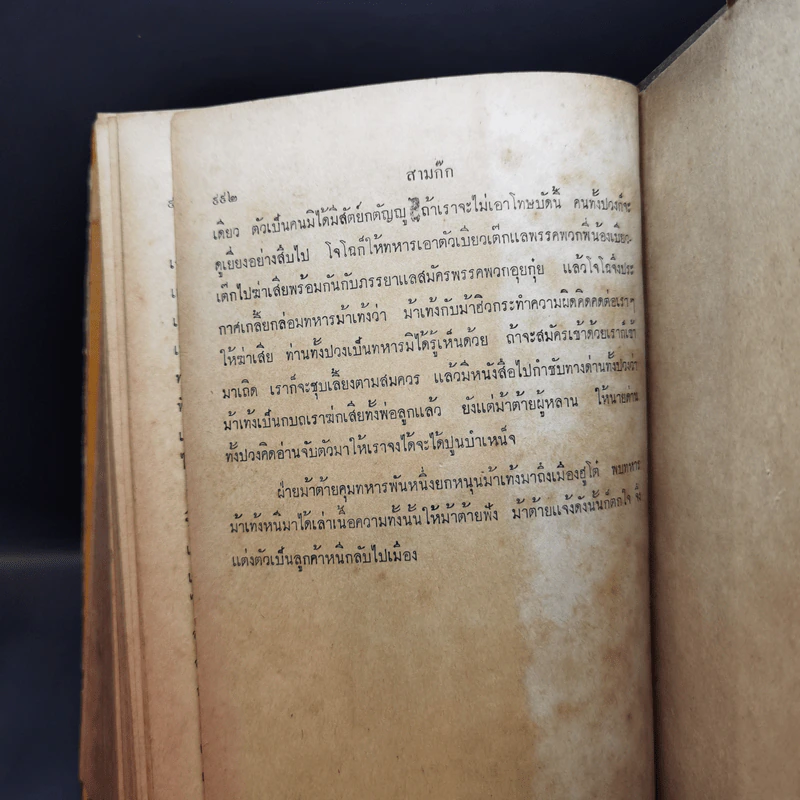 สามก๊ก
๙๙๒
เดียว ตัวเป็นคนมิได้มีสัตย์กตัญญู ถ้าเราจะไม่เอาโทษบัดนี้ คนทั้งปวงก็จะ
ดูเยี่ยงอย่างสืบไป โจโฉก็ให้ทหารเอาตัวเบียวเต๊กแลพรรคพวกพี่น้องเบียว-
เต๊กไปฆ่าเสียพร้อมกันกับภรรยาแลสมัครพรรคพวกอุยกุ๋ย แล้วโจโฉจึงประ
กาศเกลี้ยกล่อมทหารม้าเท้งว่า ม้าเท้งกับม้าฮิวกระทำความผิดคิดคดต่อเราๆ
ให้ฆ่าเสีย ท่านทั้งปวงเป็นทหารมิได้รู้เห็นด้วย ถ้าจะสมัครเข้าด้วยเราก็เข้า
มาเถิด เราก็จะชุบเลี้ยงตามสมควร แล้วมีหนังสือไปกำชับทางด่านทั้งปวงว่า
ม้าเท้งเป็นกบถเราฆ่าเสียทั้งพ่อลูกแล้ว ยังแต่ม้าต้ายผู้หลาน ให้นายด่าน
ทั้งปวงคิดอ่านจับตัวมาให้เราจงได้จะได้ปูนบำเหน็จ
ฝ่ายม้าต้ายคุมทหารพันหนึ่งยกหนุนม้าเท้งมาถึงเมืองฮูโต๋ พบทหาร
ม้าเท้งหนีมาได้เล่าเนื้อความทั้งนั้นให้ม้าต้ายฟัง ม้าต้ายแจ้งดังนั้นก็ตกใจ จึง
แต่งตัวเป็นลูกค้าหนีกลับไปเมือง